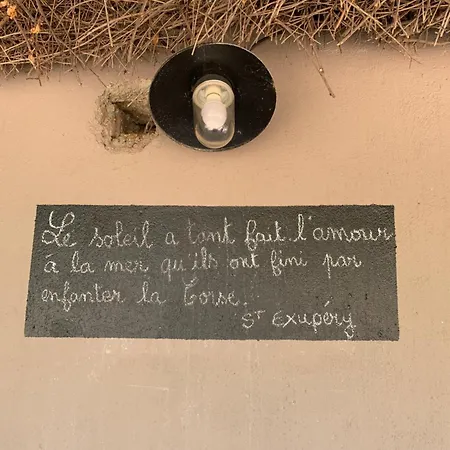 Le soleil a tant fait l'amour
à la mer qu'ils ont fini par
enfanter la Corse.
ST EXUPÉRY